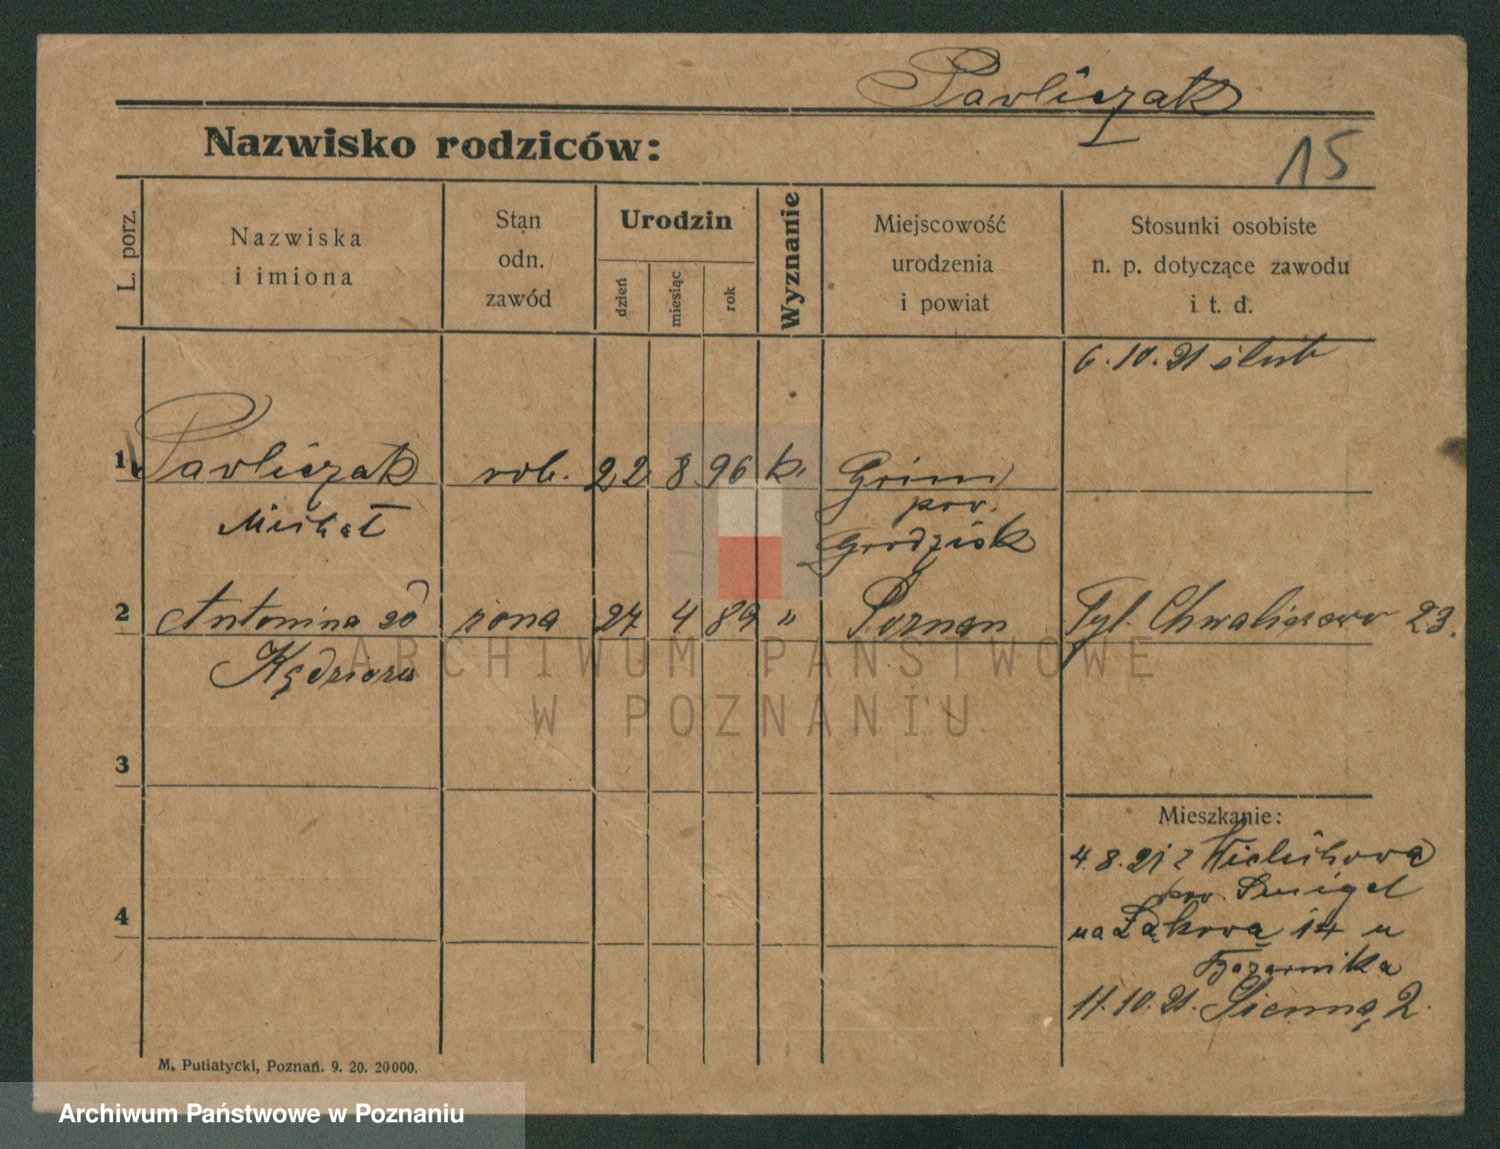 Pawliczak
Nazwisko rodziców:
15
L. porz.
Nazwiska
i imiona
Stąn
odn.
zawód
Urodzin
dzień
miesiąc
rok
Wyznanie
Miejscowość
urodzenia
i powiat
Stosunki osobiste
n. p. dotyczące zawodu
i t. d.
6.10.21 ślub
1 Pawliczak rob. 22 8 96 k. Grim
Michał pow.
Grodzisk
2 Antonina zd żona 27 4 89 " Poznan Tyl. Chwaliszewo 23.
Kędziora
3
Mieszkanie:
4.8.21 z Wielichowa
pow. Smigel
4
na Łąkową 14 u
11.10.21. Sienna, 2.
M. Putiatycki, Poznań. 9. 20. 20000.
ARCHIWUM PAŃSTWOWE
W POZNANIU
Archiwum Państwowe w Poznaniu